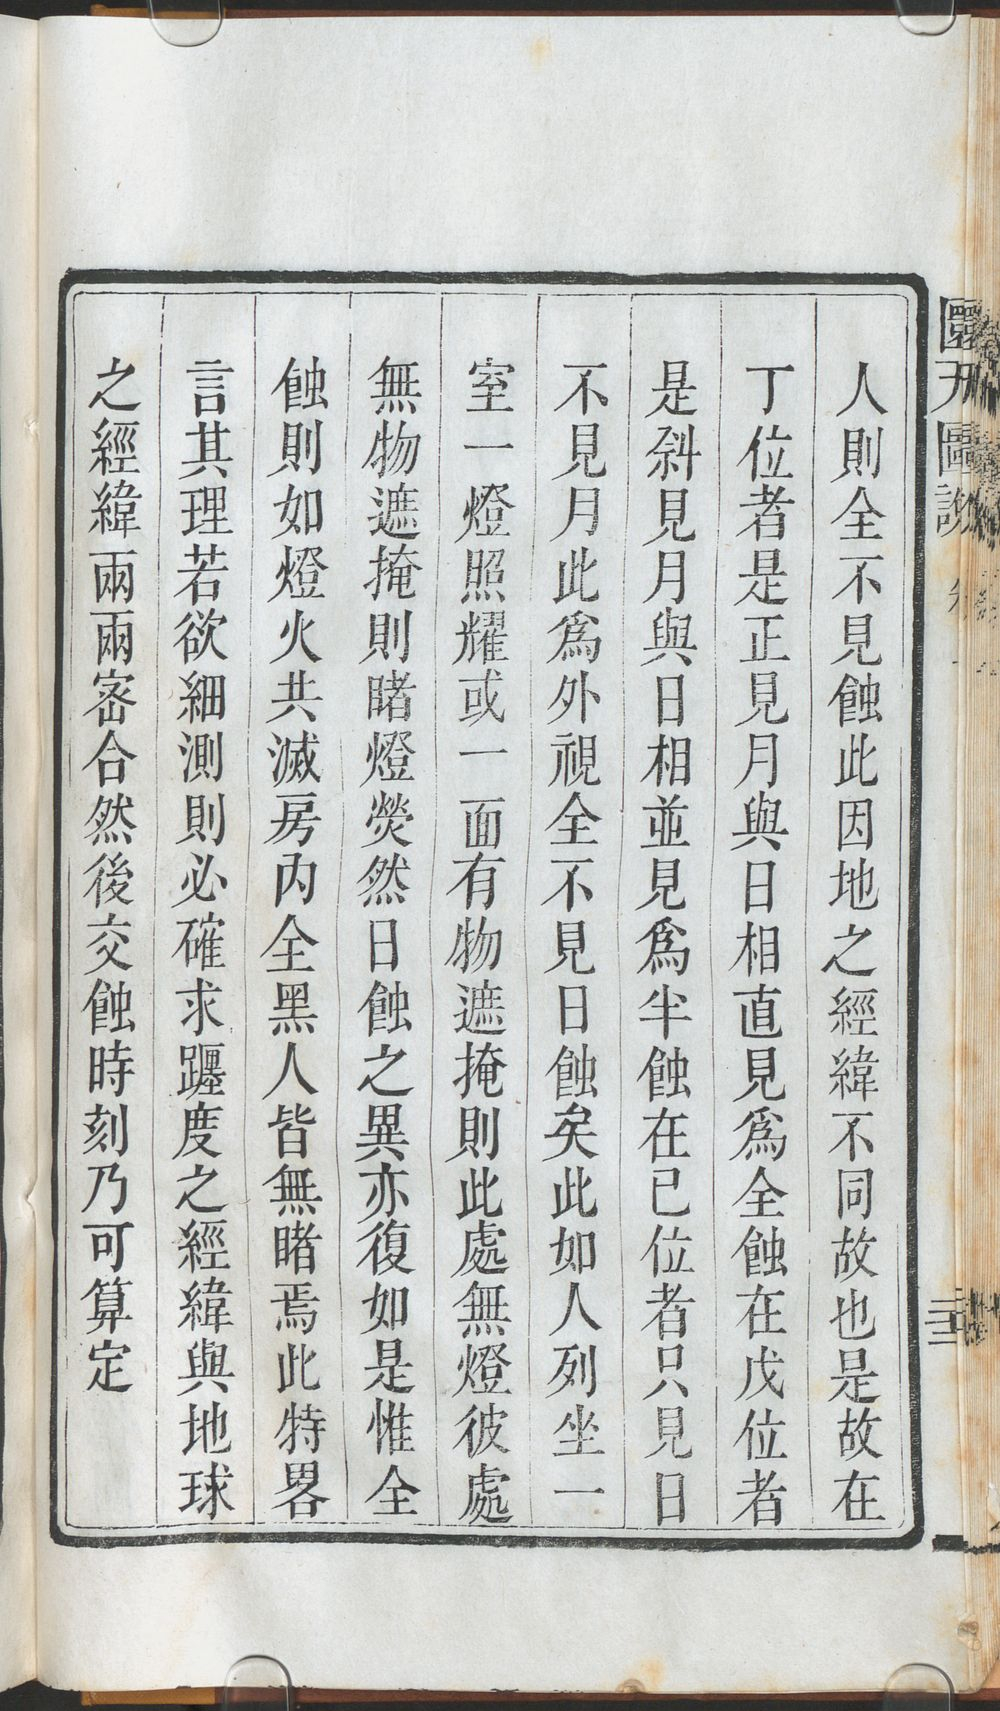 人則全不見蝕此因地之經緯不同故也是故在
丁位者是正見月與日相直見爲全蝕在戊位者
是斜見月與日相並見爲半蝕在已位者只見日
不見月此爲外視全不見日蝕矣此如人列坐一
室一燈照耀或一面有物遮掩則此處無燈彼處
無物遮掩則睹燈熒然日蝕之異亦復如是惟全
蝕則如燈火共滅房內全黑人皆無睹焉此特畧
言其理若欲細測則必確求躔度之經緯與地球
之經緯兩兩宻合然後交蝕時刻乃可算定